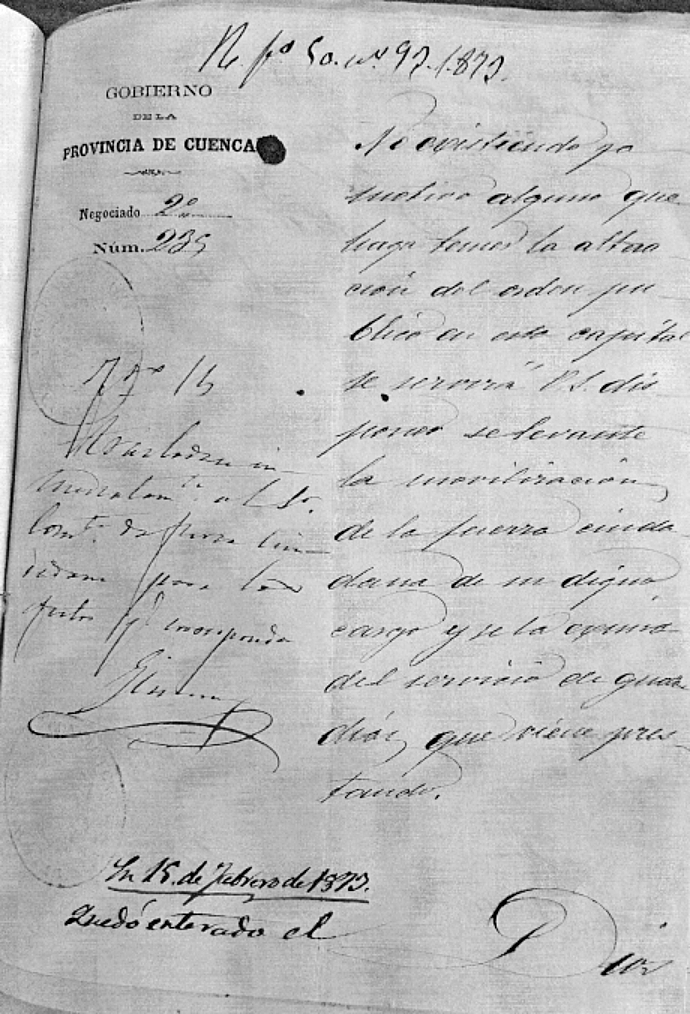 R. fº 50. nº 97. 1.873.
GOBIERNO
DE LA
PROVINCIA DE CUENCA
Negociado 2º
Núm. 235
No existiendo ya
motivo alguno que
haga temer la altera
ción del orden pu
blico en esta capital
se servirá V.S. dis
poner se levante
la movilización
de la fuerza ciuda
dana de su digno
cargo y se la exima
del servicio de guar
dias, que viene pres
tando.
15
Trasladese in
mediatamte. al Sr.
Comte. de fuerza Ciu
dadana para los
fectos q. corresponda
En 15. de Febrero de 1873.
Quedó enterado el
Dios